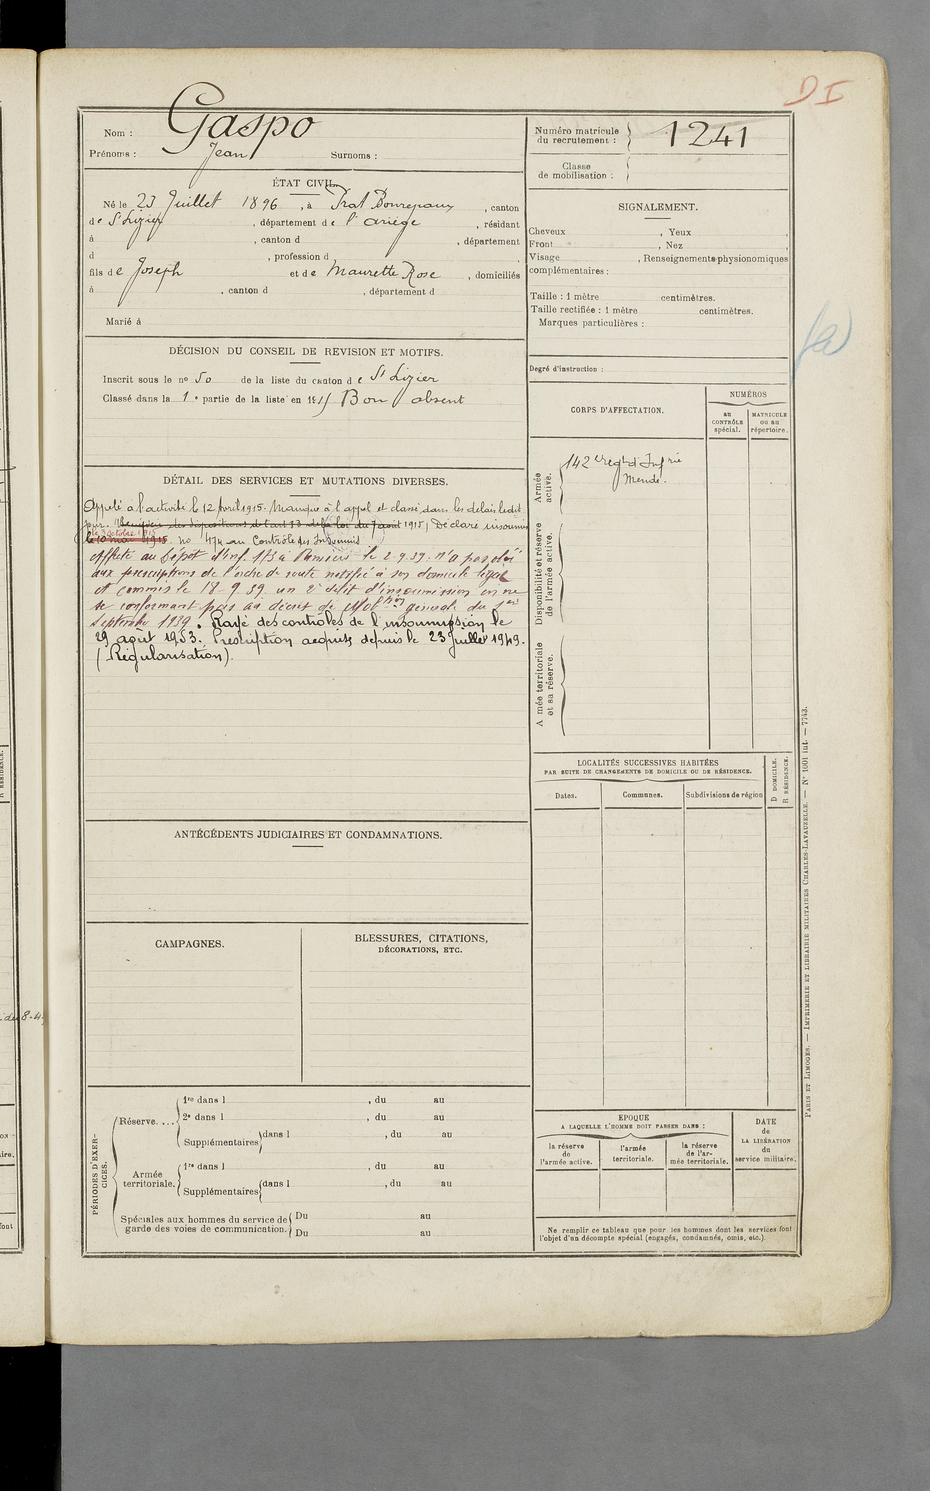 D I
Nom : Gaspo
Prénoms : Jean Surnoms :
Numéro matricule du recrutement : 1241
Classe de mobilisation :
ÉTAT CIVIL
Né le 23 Juillet 1896, à Prat Bonrepaux, canton
de St Lizier, département de l'ariège, résidant
à , canton d , département
d , profession d ,
fils de Joseph et de Maurette Rose, domiciliés
à , canton d , département d
Marié à
DÉCISION DU CONSEIL DE REVISION ET MOTIFS.
Inscrit sous le no 50 de la liste du canton de St Lizier
Classé dans la 1e partie de la liste en 1915 Bon absent
DÉTAIL DES SERVICES ET MUTATIONS DIVERSES.
Appelé à l'activité le 12 Avril 1915. Manque à l'appel et classé dans les délais ledit
jour. Bénéficie des dispositions de l'art 13 de la loi du 7 aout 1915, Déclaré insoumis
le 3 octobre 1915
le 10 mai 1915. no 474 au Contrôle des Insoumis
affecté au Dépôt d'inf. 173 à Pamiers le 2-9-39. n'a pas obéi
aux prescriptions de l'ordre de route notifié à son domicile légal
et commis le 18-9-39 un 2e délit d'insoumission en ne
se conformant pas au décret de Mobon général du 1er
Septembre 1939. Rayé des contrôles de l'insoumission le
29 août 1953. Prescription acquise depuis le 23 Juillet 1949.
(Régularisation).
ANTÉCÉDENTS JUDICIAIRES ET CONDAMNATIONS.
CAMPAGNES.
BLESSURES, CITATIONS,
DÉCORATIONS, ETC.
PÉRIODES D'EXERCICES.
Réserve....
1re dans l , du au
2e dans l , du au
Supplémentaires dans l , du au
Armée territoriale.
1re dans l , du au
Supplémentaires dans l , du au
Spéciales aux hommes du service de garde des voies de communication.
Du au
Du au
SIGNALEMENT.
Cheveux , Yeux ,
Front , Nez ,
Visage , Renseignements physionomiques
complémentaires :
Taille : 1 mètre centimètres.
Taille rectifiée : 1 mètre centimètres.
Marques particulières :
Degré d'instruction :
CORPS D'AFFECTATION.
NUMÉROS
au CONTRÔLE spécial.
MATRICULE ou au répertoire.
Armée active.
142e Regt d'Infrie
Mende.
Disponibilité et réserve de l'armée active.
A mée territoriale et sa réserve.
LOCALITÉS SUCCESSIVES HABITÉES
PAR SUITE DE CHANGEMENTS DE DOMICILE OU DE RÉSIDENCE.
Dates. Communes. Subdivisions de région
D DOMICILE.
R RÉSIDENCE.
EPOQUE
A LAQUELLE L'HOMME DOIT PASSER DANS :
la réserve de l'armée active.
l'armée territoriale.
la réserve de l'armée territoriale.
DATE de LA LIBÉRATION du service militaire.
Ne remplir ce tableau que pour les hommes dont les services font
l'objet d'un décompte spécial (engagés, condamnés, omis, etc.).
PARIS ET LIMOGES. — IMPRIMERIE ET LIBRAIRIE MILITAIRES CHARLES-LAVAUZELLE. — No 1001 int. — 7743.